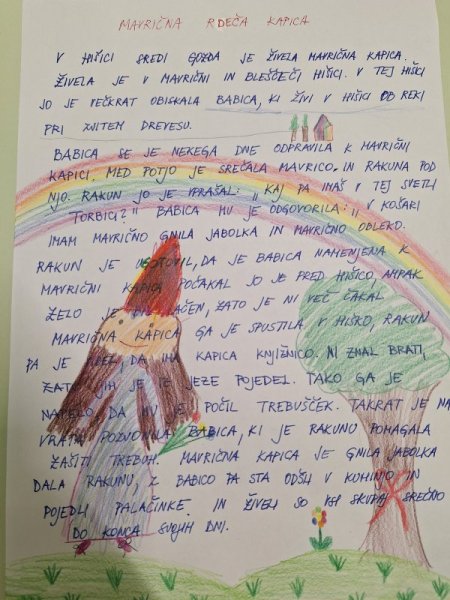 MAVRIČNA RDEČA KAPICA
V HIŠICI SREDI GOZDA JE ŽIVELA MAVRIČNA KAPICA.
ŽIVELA JE V MAVRIČNI IN BLEŠČEČI HIŠICI. V TEJ HIŠICI
JO JE VEČKRAT OBISKALA BABICA, KI ŽIVI V HIŠICI OB REKI
PRI ZVITEM DREVESU.
BABICA SE JE NEKEGA DNE ODPRAVILA K MAVRIČNI
KAPICI. MED POTJO JE SREČALA MAVRICO IN RAKUNA POD
NJO. RAKUN JO JE VPRAŠAL: "KAJ PA IMAŠ V TEJ SVETLI
TORBICI?" BABICA MU JE ODGOVORILA: "V KOŠARI
IMAM MAVRIČNO GNILA JABOLKA IN MAVRIČNO OBLEKO.
RAKUN JE UGOTOVIL, DA JE BABICA NAMENJENA K
MAVRIČNI KAPICI. POČAKAL JO JE PRED HIŠICO, AMPAK
ŽELO JE BIL LAČEN, ZATO JE NI VEČ ČAKAL.
MAVRIČNA KAPICA GA JE SPUSTILA V HIŠKO, RAKUN
PA JE VIDEL, DA IMA KAPICA KNJIŽNICO. NI ZNAL BRATI,
ZATO JIH JE IZ JEZE POJEDEL. TAKO GA JE
NAPELO, DA MU JE POČIL TREBUŠČEK. TAKRAT JE NA
VRATA POZVONILA BABICA, KI JE RAKUNU POMAGALA
ZAŠITI TREBUH. MAVRIČNA KAPICA JE GNILA JABOLKA
DALA RAKUNU, Z BABICO PA STA ODŠLI V KUHINJO IN
POJEDLI PALAČINKE. IN ŽIVELI SO VSI SKUPAJ SREČNO
DO KONCA SVOJIH DNI.